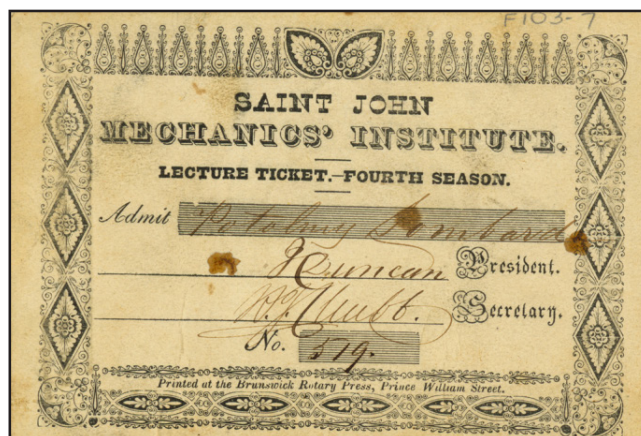 F103-7
SAINT JOHN
MECHANICS' INSTITUTE.
LECTURE TICKET.–FOURTH SEASON.
Admit Potolmy Lombard
Duncan President.
Secretary.
No. 519.
Printed at the Brunswick Rotary Press, Prince William Street.